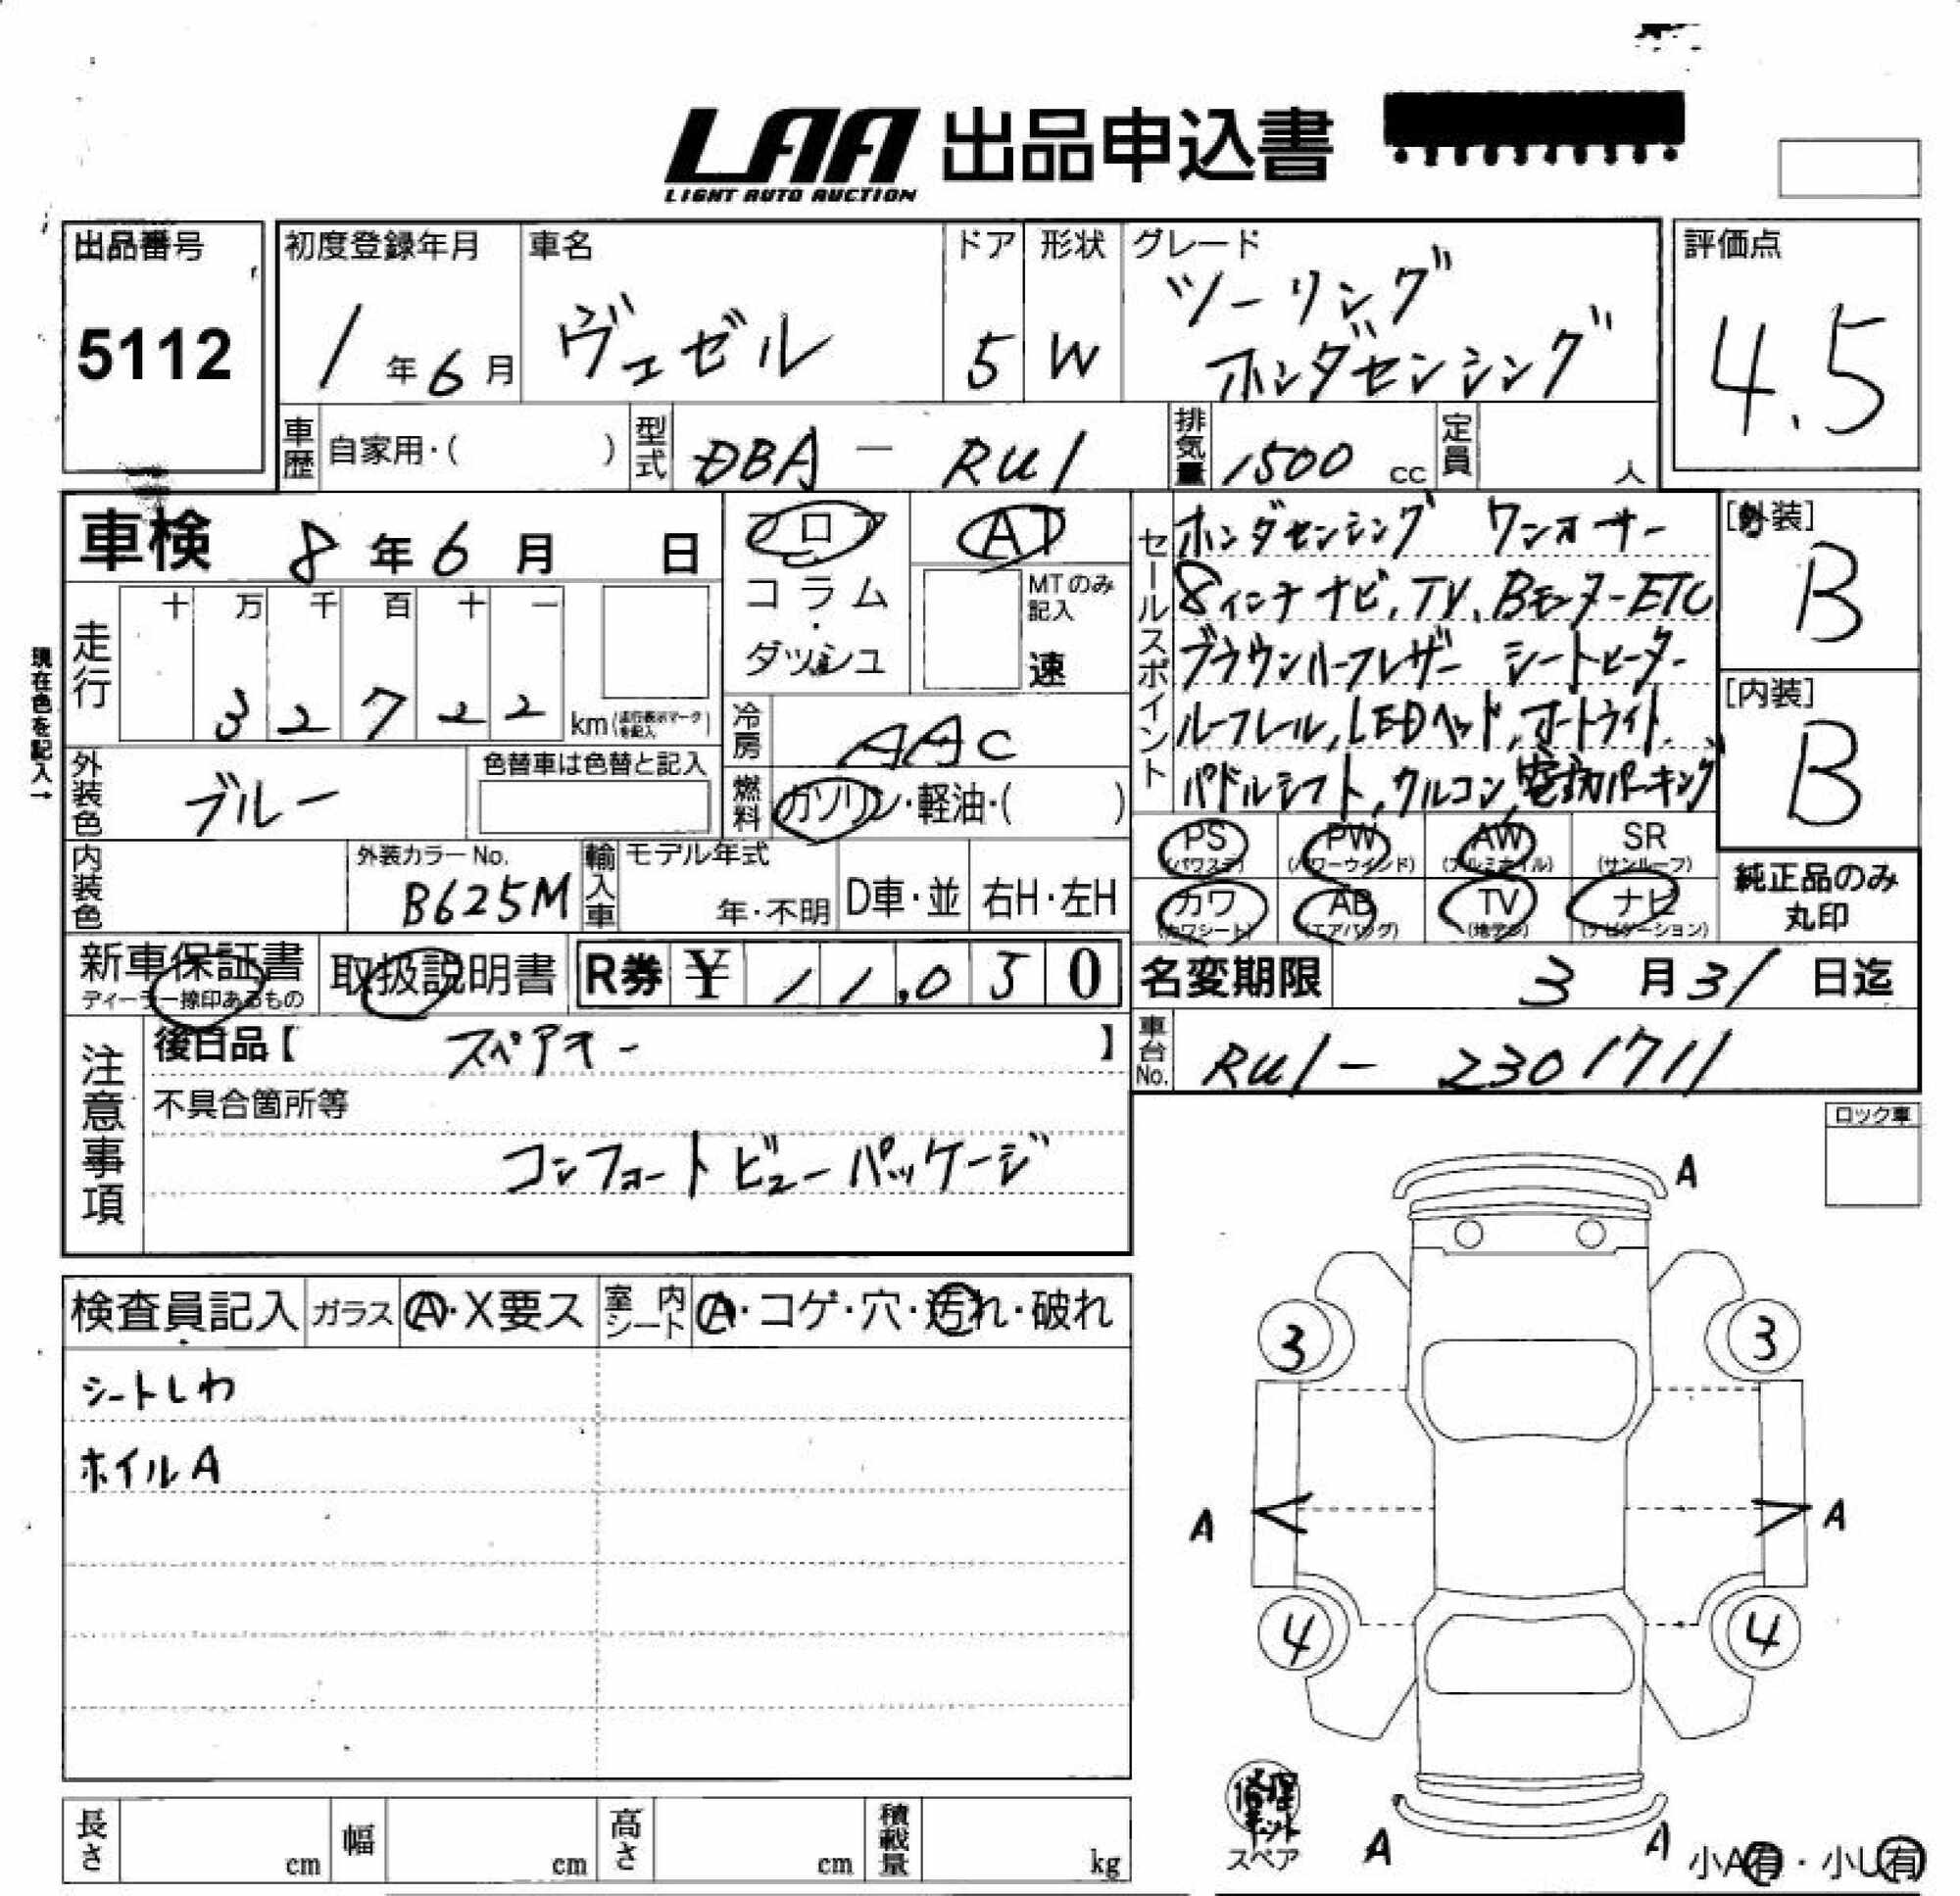 LAA 出品申込書
LIGHT AUTO AUCTION
出品番号 5112
初度登録年月 1年6月
車名 ヴェゼル
ドア 5
形状 W
グレード ツーリング
ホンダセンシング
評価点 4.5
車歴 自家用・( )
型式 DBA - RU1
排気量 1500 cc
定員 人
車検 8年6月 日
フロア
コラム
・
ダッシュ
AT
MTのみ記入
速
セールスポイント
ホンダセンシング ワンオーナー
8インチナビ,TV,BモニターETC
ブラウンハーフレザー シートヒーター
ルーフレール,LEDヘッド,オートライト,
パドルシフト,クルコン,電動パーキング
[外装] B
[内装] B
現在色を記入→
走行 十 万 千 百 十 一
3 2 7 2 2 km (走行表示マークを記入)
冷房 AAC
外装色 ブルー
色替車は色替と記入
燃料 ガソリン・軽油・( )
内装色
外装カラーNo. B625M
輸入車 モデル年式 年・不明
D車・並
右H・左H
PS (パワステ)
PW (パワーウインド)
AW (アルミホイル)
SR (サンルーフ)
カワ (カワシート)
AB (エアバッグ)
TV (地デジ)
ナビ (ナビゲーション)
純正品のみ
丸印
新車保証書
ディーラー捺印あるもの
取扱説明書
R券 ¥ 11,050
名変期限 3月31日迄
車台No. RU1- 2301711
注意事項
後日品【 スペアキー 】
不具合箇所等
コンフォートビューパッケージ
ロック車
検査員記入
ガラス A・X要ス
室内シート A・コゲ・穴・汚れ・破れ
シートしわ
ホイルA
A
3 3
A A
4 4
修理キット
スペア
A A
小A有・小U有
長さ cm
幅 cm
高さ cm
積載量 kg